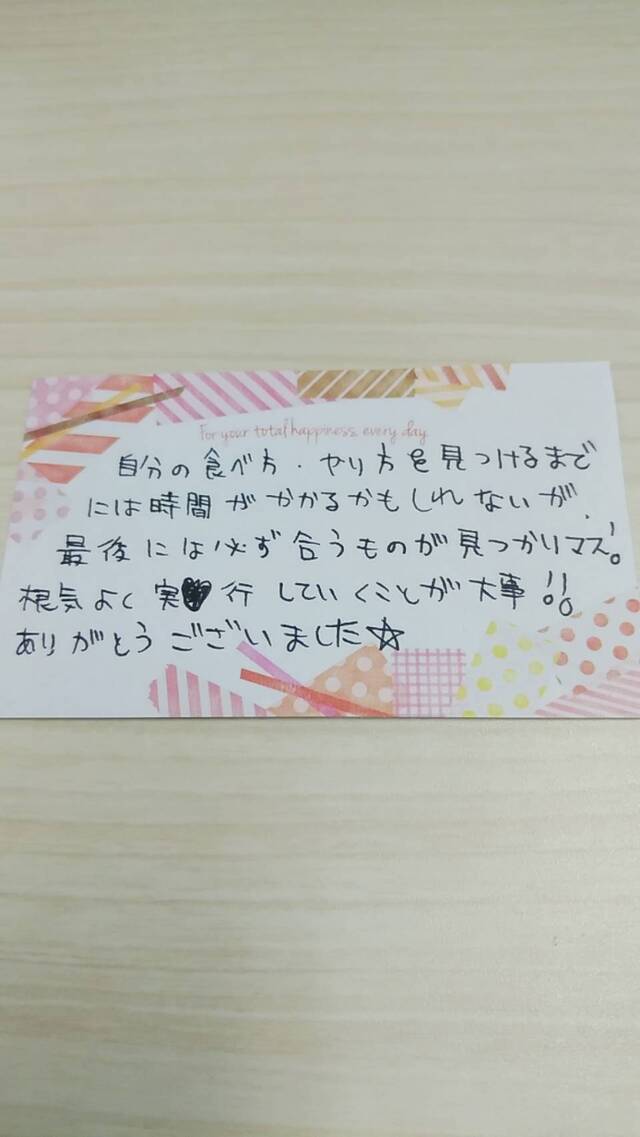 For your total happiness, every day
自分の食べ方・やり方を見つけるまで
には時間がかかるかもしれないが、
最後には必ず合うものが見つかりマス!。
根気よく実♥行していくことが大事!!。
ありがとうございました☆